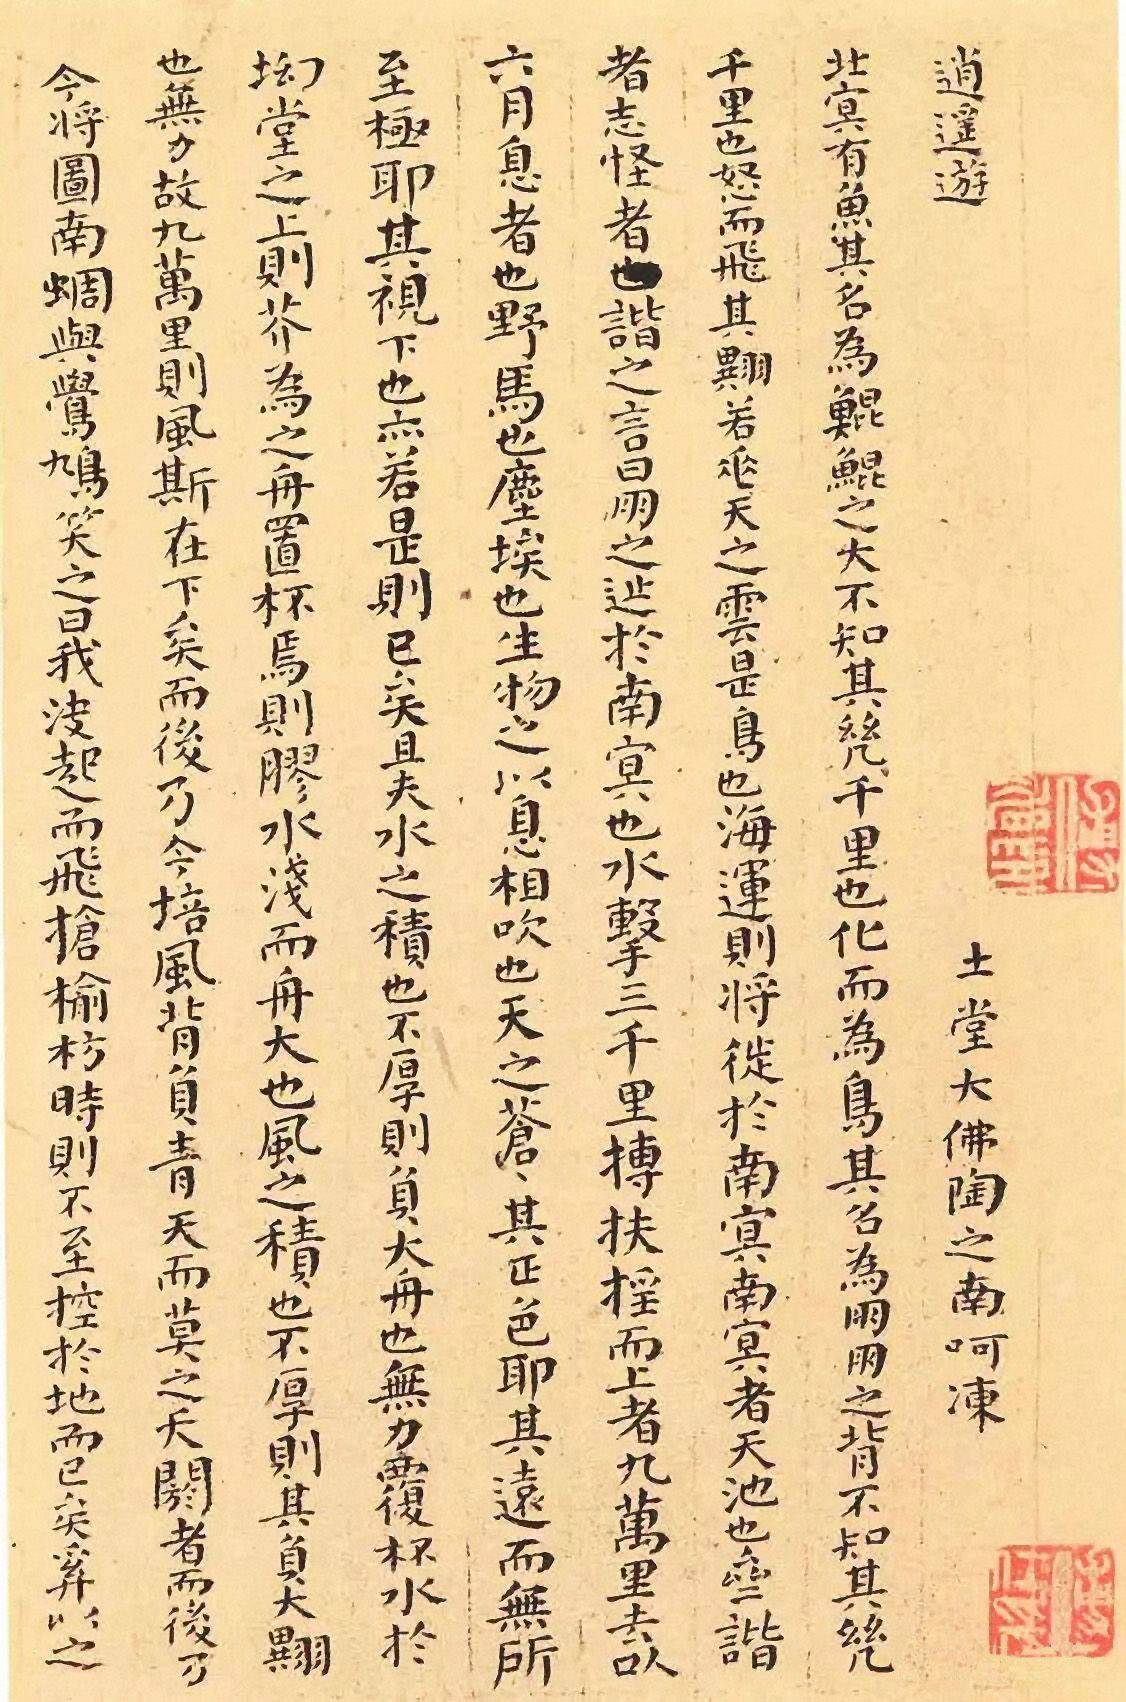 逍遥遊
土堂大佛陶之南呵凍
北㝠有魚其名為鯤鯤之大不知其㡬千里也化而為鳥其名為朋朋之背不知其㡬
千里也怒而飛其翼若垂天之雲是鳥也海運則将徙於南㝠南㝠者天池也齊諧
者志怪者也諧之言曰朋之迆於南㝠也水擊三千里搏扶揺而上者九萬里去以
六月息者也野馬也塵埃也生物之以息相吹也天之蒼、其正色耶其遠而無所
至極耶其視下也亦若是則已矣且夫水之積也不厚則負大舟也無力覆杯水於
坳堂之上則芥為之舟置杯焉則膠水淺而舟大也風之積也不厚則其負大翼
也無力故九萬里則風斯在下矣而後乃今培風背負青天而莫之夭閼者而後乃
今将圖南蜩與鷽鳩笑之曰我决起而飛搶榆枋時則不至控於地而已矣奚以之